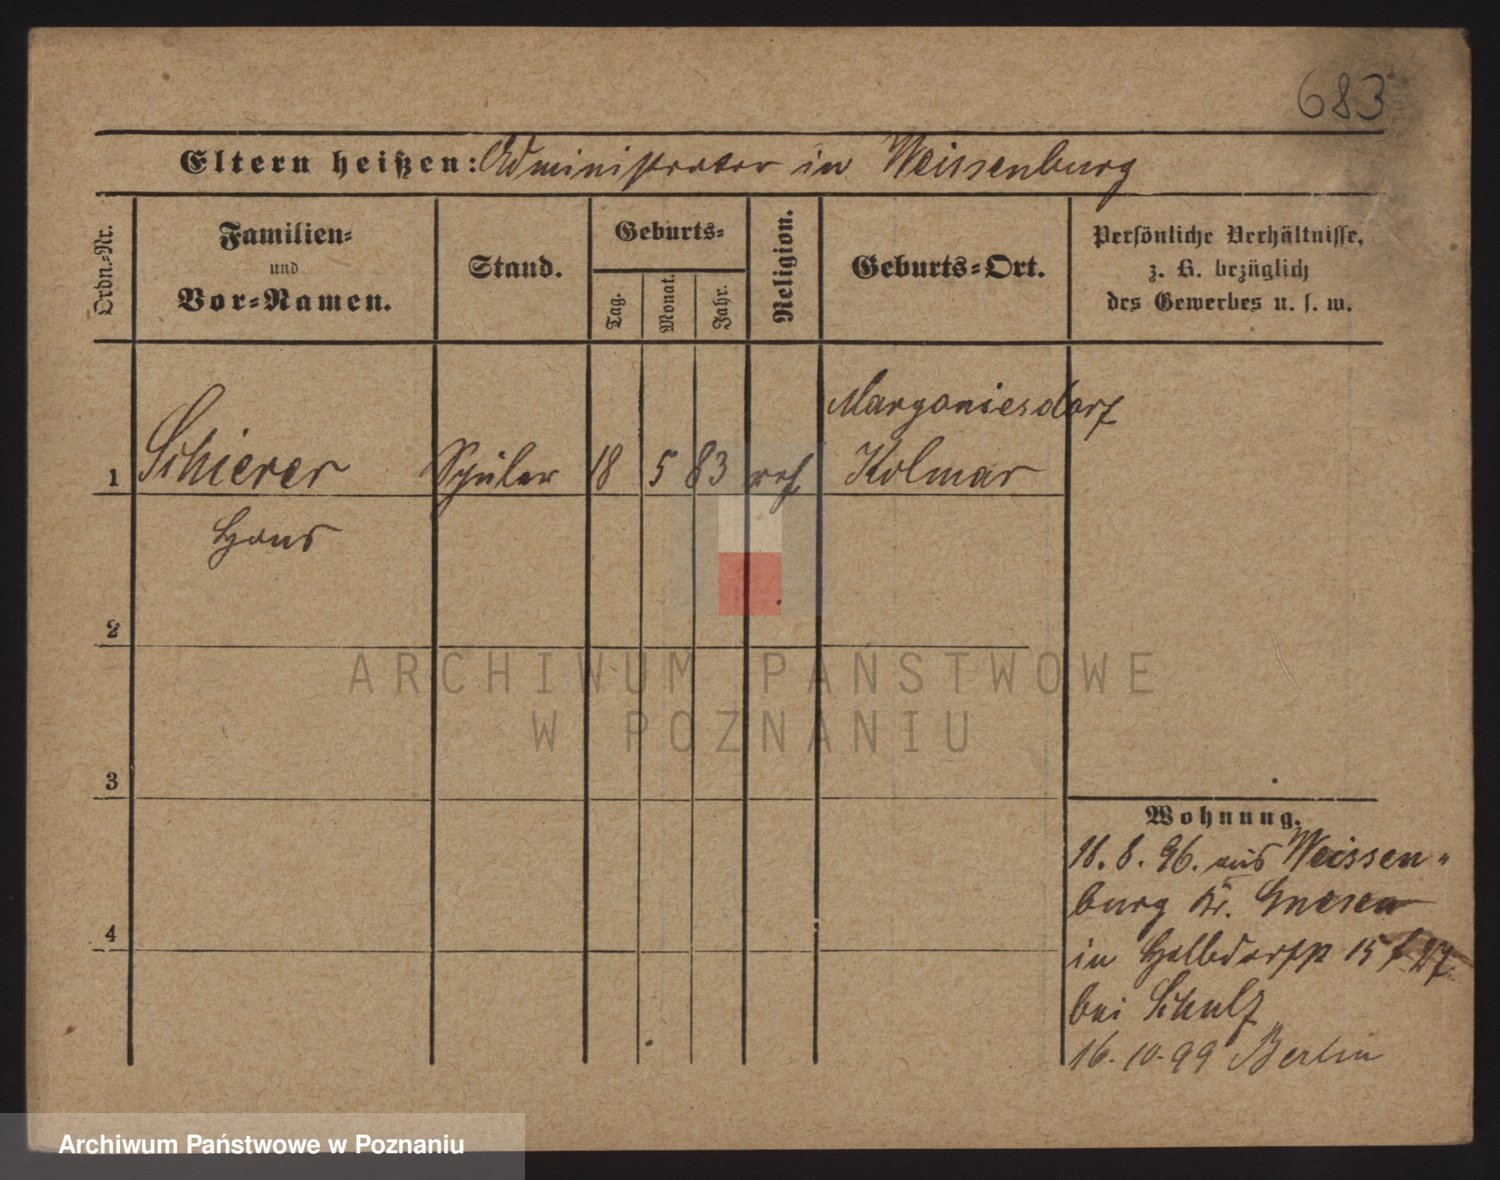 683
Eltern heißen: Administrator in Weissenburg
Ordn.-Nr.
Familien-
und
Vor-Namen.
Stand.
Geburts-
Tag.
Monat.
Jahr.
Religion.
Geburts-Ort.
Persönliche Verhältnisse,
z. B. bezüglich
des Gewerbes u. s. w.
Margoniesdorf
1 Schierer Schüler 18 5 83 ref Kolmar
Hans
2
3
4
Wohnung.
18. 8. 96. aus Weissen-
burg Kr. Gnesen
in Halbdorfstr 15
bei Schulz
16. 10. 99 Berlin
ARCHIWUM PAŃSTWOWE
W POZNANIU
Archiwum Państwowe w Poznaniu